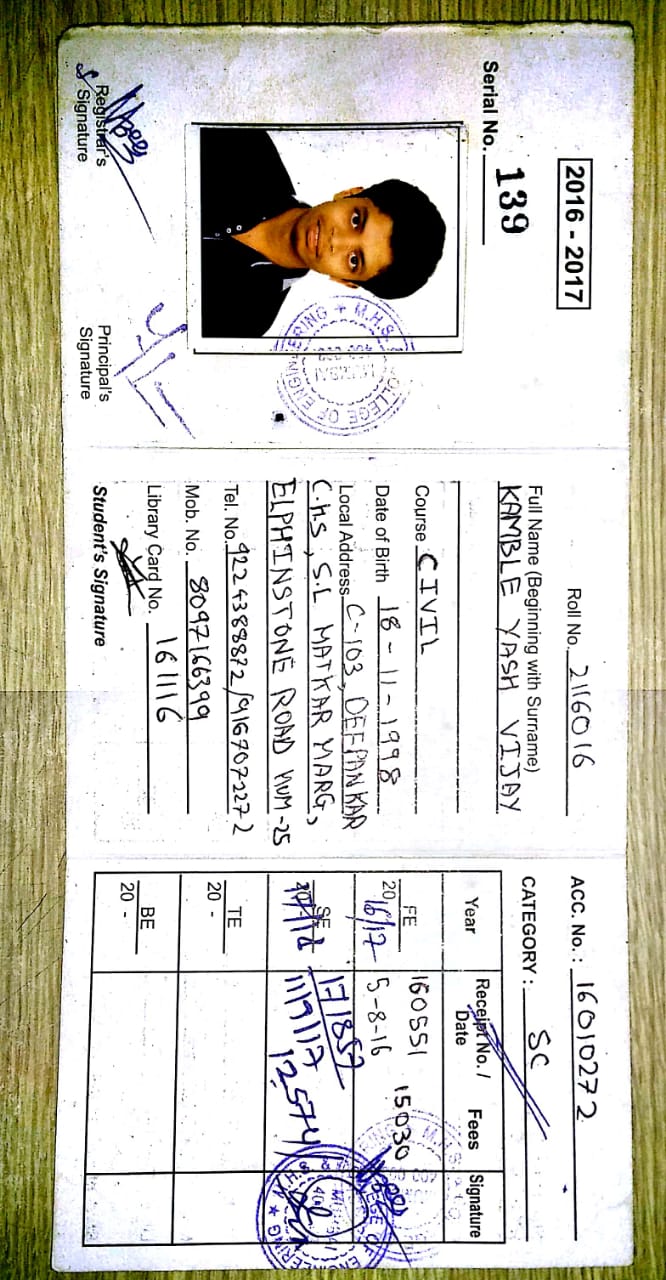 2016 - 2017
Serial No. 139
M.H.S.
COLLEGE OF ENGINEERING
Registrar's
Signature
Principal's
Signature
Roll No. 2116016
Full Name (Beginning with Surname)
KAMBLE YASH VIJAY
Course CIVIL
Date of Birth 18-11-1998
Local Address C-103, DEEPANKAR
C.H.S, S.L MATKAR MARG,
ELPHINSTONE ROAD MUM-25
Tel. No. 9224388872/9167072272
Mob. No. 8097166399
Library Card No. 161116
Student's Signature
ACC. No. : 16010272
CATEGORY : SC
Year Receipt No. / Date Fees Signature
FE
2016/17 160551
5-8-16 15030
SE
2017/18 171857
11/9/17 12,574/
TE
20 -
BE
20 -